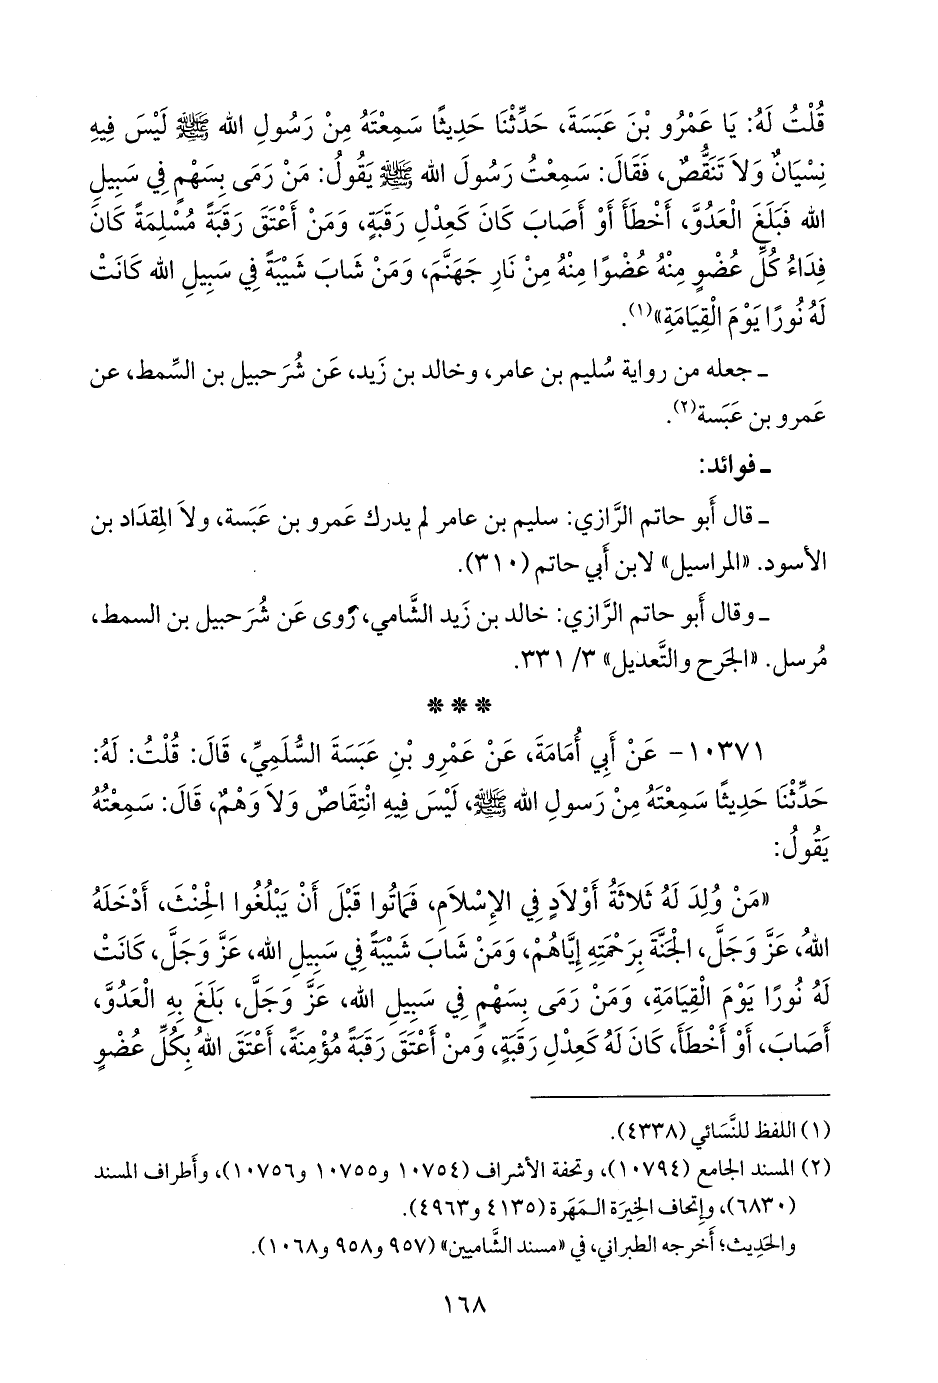 قُلْتُ لَهُ: يَا عَمْرُو بْنَ عَبَسَةَ، حَدِّثْنَا حَدِيثًا سَمِعْتَهُ مِنْ رَسُولِ الله ﷺ لَيْسَ فِيهِ
نِسْيَانٌ وَلاَ تَنَقُّصٌ، فَقَالَ: سَمِعْتُ رَسُولَ الله ﷺ يَقُولُ: مَنْ رَمَى بِسَهْمٍ فِي سَبِيلِ
الله فَبَلَغَ الْعَدُوَّ، أَخْطَأَ أَوْ أَصَابَ كَانَ كَعِدْلِ رَقَبَةٍ، وَمَنْ أَعْتَقَ رَقَبَةً مُسْلِمَةً كَانَ
فِدَاءُ كُلِّ عُضْوٍ مِنْهُ عُضْوًا مِنْهُ مِنْ نَارِ جَهَنَّمَ، وَمَنْ شَابَ شَيْبَةً فِي سَبِيلِ الله كَانَتْ
لَهُ نُورًا يَوْمَ الْقِيَامَةِ»(١).
ـ جعله من رواية سُليم بن عامر، وخالد بن زَيد، عَن شُرَحبيل بن السِّمط، عن
عَمرو بن عَبَسة(٢).
ـ فوائد:
ـ قال أَبو حاتم الرَّازي: سليم بن عامر لم يدرك عَمرو بن عَبَسة، ولاَ المِقدَاد بن
الأسود. «المراسيل» لابن أَبي حاتم (٣١٠).
ـ وقال أَبو حاتم الرَّازي: خالد بن زَيد الشَّامي، رَوى عَن شُرَحبيل بن السمط،
مُرسل. «الجَرح والتَّعديل» ٣/ ٣٣١.
* * *
١٠٣٧١- عَنْ أَبِي أُمَامَةَ، عَنْ عَمْرِو بْنِ عَبَسَةَ السُّلَمِيِّ، قَالَ: قُلْتُ: لَهُ:
حَدِّثْنَا حَدِيثًا سَمِعْتَهُ مِنْ رَسولِ الله ﷺ، لَيْسَ فِيهِ انْتِقَاصٌ وَلاَ وَهْمٌ، قَالَ: سَمِعْتُهُ
يَقُولُ:
«مَنْ وُلِدَ لَهُ ثَلاَثَةُ أَوْلاَدٍ فِي الإِسْلاَمِ، فَمَاتُوا قَبْلَ أَنْ يَبْلُغُوا الْحِنْثَ، أَدْخَلَهُ
اللهُ، عَزَّ وَجَلَّ، الْجَنَّةَ بِرَحْمَتِهِ إِيَّاهُمْ، وَمَنْ شَابَ شَيْبَةً فِي سَبِيلِ الله، عَزَّ وَجَلَّ، كَانَتْ
لَهُ نُورًا يَوْمَ الْقِيَامَةِ، وَمَنْ رَمَى بِسَهْمٍ فِي سَبِيلِ الله، عَزَّ وَجَلَّ، بَلَغَ بِهِ الْعَدُوَّ،
أَصَابَ، أَوْ أَخْطَأَ، كَانَ لَهُ كَعِدْلِ رَقَبَةٍ، وَمنْ أَعْتَقَ رَقَبَةً مُؤْمِنَةً، أَعْتَقَ اللهُ بِكُلِّ عُضْوٍ
(١) اللفظ للنَّسَائي (٤٣٣٨).
(٢) المسند الجامع (١٠٧٩٤)، وتحفة الأشراف (١٠٧٥٤ و١٠٧٥٥ و١٠٧٥٦)، وأَطراف المسند
(٦٨٣٠)، وإِتحاف الخِيرَة المَهَرة (٤١٣٥ و٤٩٦٣).
والحَدِيث؛ أَخرجه الطبراني، في «مسند الشَّاميين» (٩٥٧ و٩٥٨ و١٠٦٨).
١٦٨